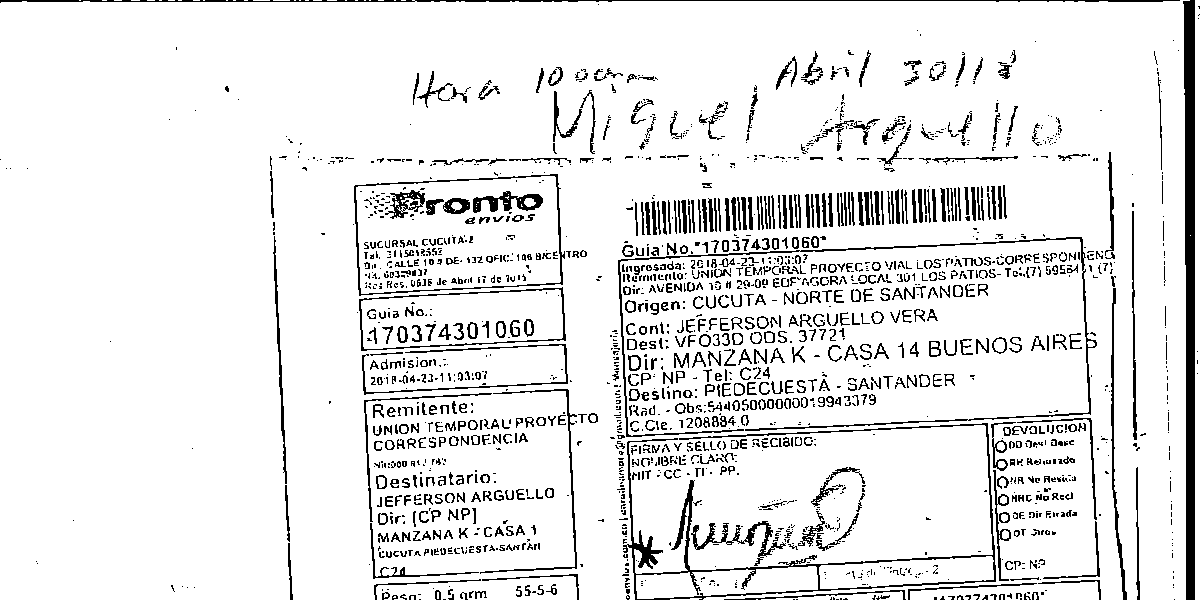 Hora 10 00am Abril 30/18
Miguel Arguello
Pronto
envios
SUCURSAL CUCUTA-2
Tel. 3115018552
Dir. CALLE 10 # DE- 132 OFIC. 106 B/CENTRO
Res Res. 0636 de Abril 17 de
Guia No.:
170374301060
Admision.:
2018-04-23-11:03:07
Remitente:
UNION TEMPORAL PROYECTO
CORRESPONDENCIA
Destinatario:
JEFFERSON ARGUELLO
Dir: [CP NP]
MANZANA K - CASA 1
CUCUTA PIEDECUESTA-SANTAN
C24
Peso: 0.5 grm 55-5-6
Guia No.*170374301060*
Ingresada: 2018-04-23-11:03:07
Remitente: UNION TEMPORAL PROYECTO VIAL LOS PATIOS-CORRESPONDENC
Dir: AVENIDA 10 # 29-09 EDF AGORA LOCAL 301 LOS PATIOS- Tel.(7)
Origen: CUCUTA - NORTE DE SANTANDER
Cont: JEFFERSON ARGUELLO VERA
Dest: VFO33D ODS. 37721
Dir: MANZANA K - CASA 14 BUENOS AIRES
CP: NP - Tel: C24
Destino: PIEDECUESTA - SANTANDER
Rad. - Obs:54405000000019943379
C.Cte. 1208884.0
FIRMA Y SELLO DE RECIBIDO:
NOMBRE CLARO:
NIT - CC - TI - PP.
DEVOLUCION
DD Desl Desc
RH Rehusado
NR No Reside
NRC No Recl
DE Dir Errada
OT Otros
CP: NP
*170374301060*